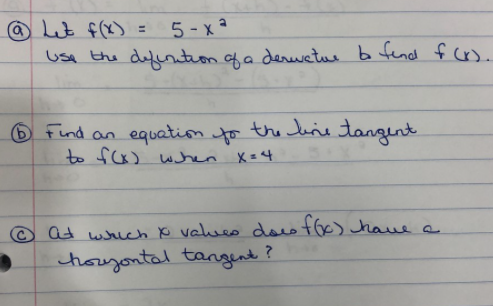 ⓐ Let f(x) = 5 - x²
Use the definition of a derivative to find f (x).
ⓑ Find an equation for the line tangent
to f(x) when x=4
ⓒ at which x values does f(x) have a
horizontal tangent?